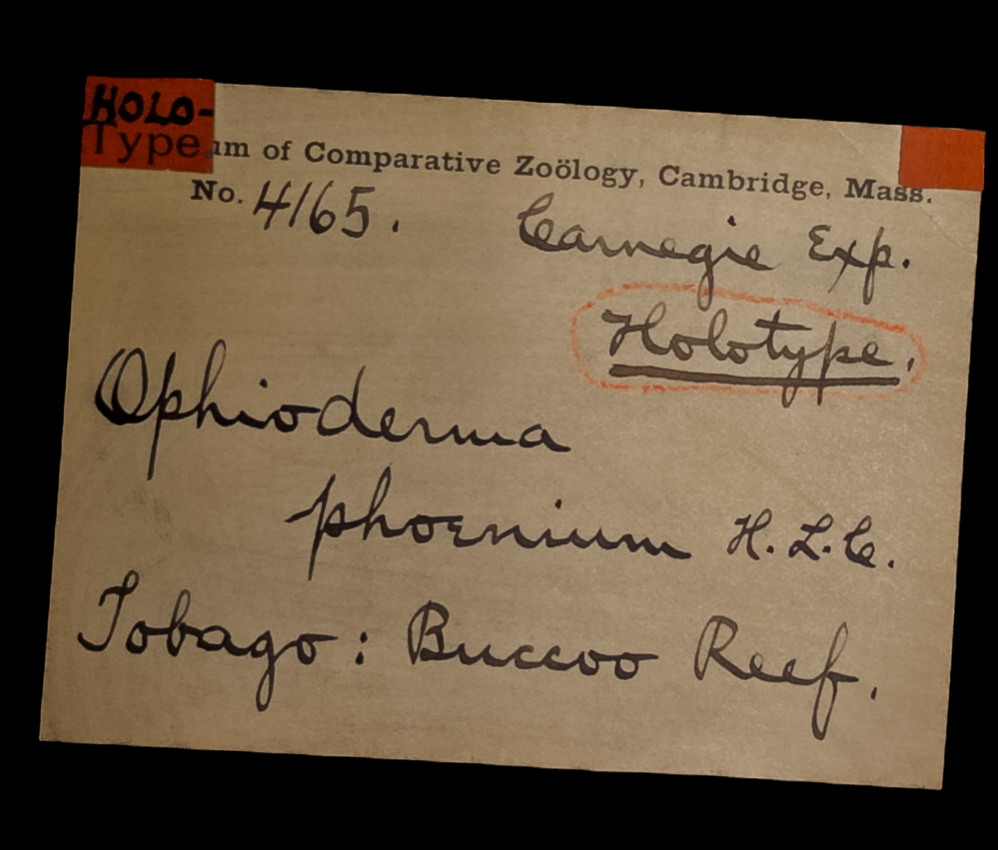 HOLO-
Type
um of Comparative Zoölogy, Cambridge, Mass.
No. 4165. Carnegie Exp.
Holotype.
Ophioderma
phoenium H. L. C.
Tobago: Buccoo Reef.